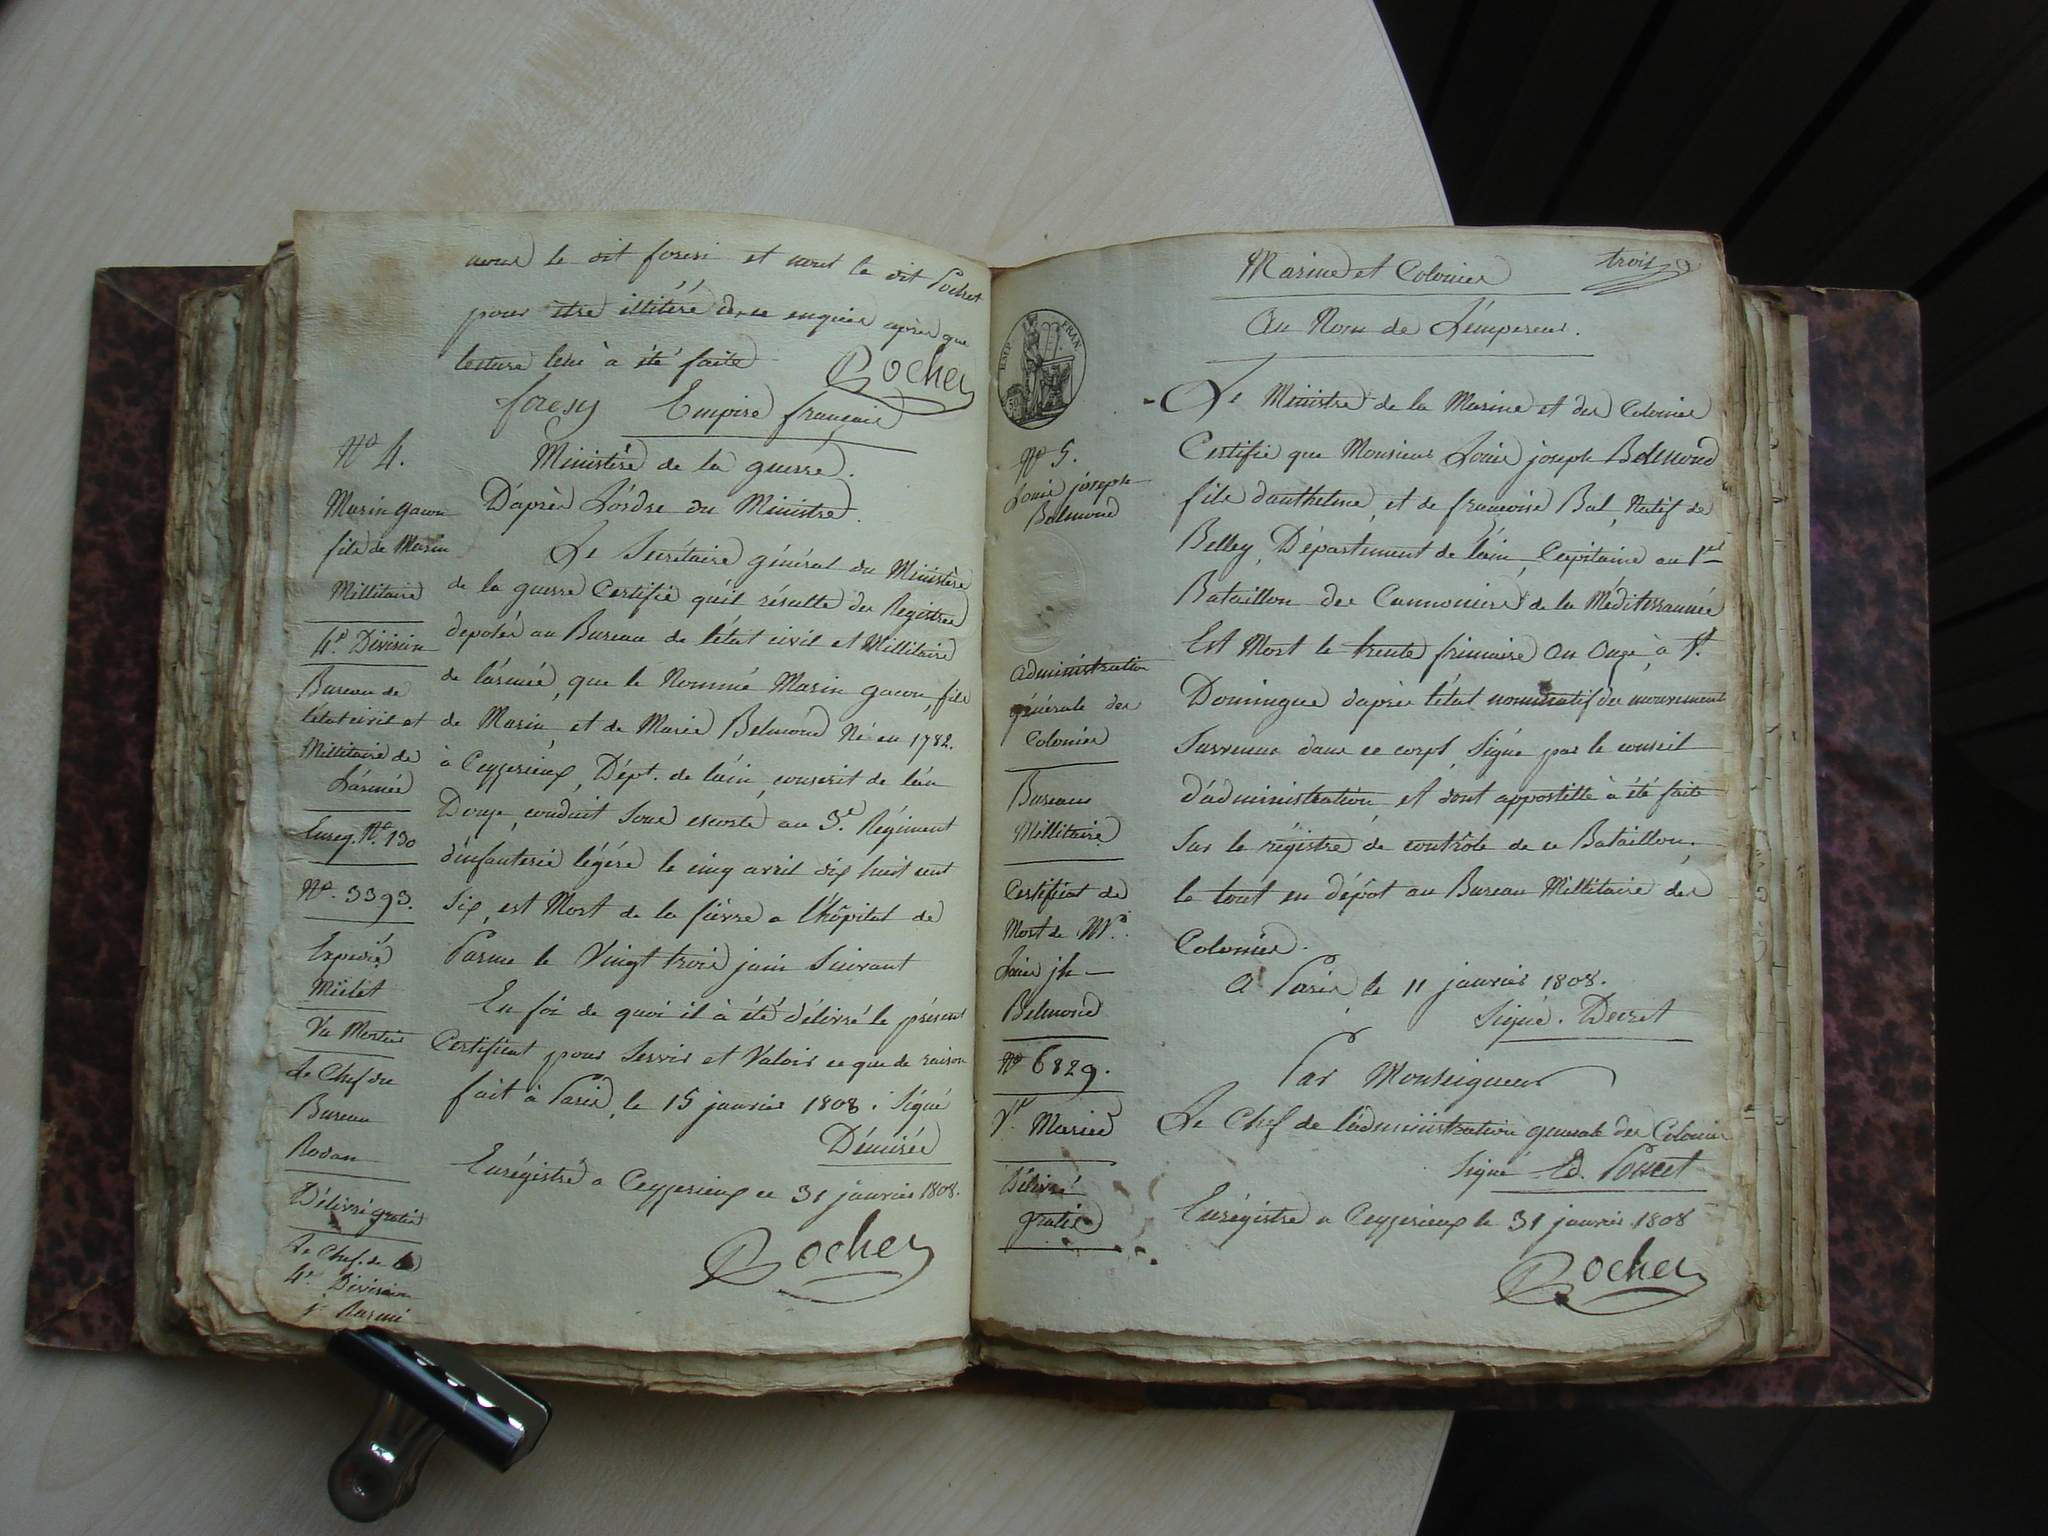 nous le dit foresi et nous le dit Pochet
pour être illitéré de ce enquis après que
lecture leur à été faite Rocher
foresy Empire français
Nº 4. Ministère de la guerre.
Marin gacon
fils de Marin
Millitaire
4e Division
Bureau de
l'état civil et
Millitaire de
L'armée
Enreg. Nº. 130
Nº. 3393.
Expédié
Millet
Vu
Le Chef du
Bureau
Délivré gratis
Le Chef de la
4e Division
D'après L'ordre du Ministre.
Le Secrétaire général du Ministère
de la guerre Certifie qu'il résulte des Registres
déposés au Bureau de l'état civil et Millitaire
de l'armée, que le Nommé Marin gacon, fils
de Marin, et de Marie Belmond Né en 1782.
à Ceyzerieux, Dépt. de l'ain, conscrit de l'an
Douze, conduit sous escorte au 3e. Régiment
d'infanterie légére le cinq avril dix huit cent
Six, est Mort de la fièvre a l'hôpital de
Parme le Vingt trois juin Suivant
En foi de quoi il à été délivré le présent
Certificat pour Servir et Valoir ce que de raison
fait à Paris, le 15 janvier 1808. Signé
Dénniée
Enrégistré a Ceyzerieux ce 31 janvier 1808.
Rocher
Marine et Colonies trois
Au Nom de L'empereur.
EMP. FRAN.
Nº 5.
Louis joseph
Belmond
administration
générale des
Colonies
Bureau
Millitaire
Certificat de
Mort de Mr.
Louis jh
Belmond
Nº 6829.
Vu Marié
Délivré
gratis
Le Ministre de la Marine et des Colonies
Certifie que Monsieur Louis joseph Belmond
fils d'anthelme, et de françoise Bal, Natif de
Belley, Département de l'ain, Capitaine au 1er
Bataillon des Cannoniers de la Méditerrannée
Est Mort le trente frimaire an onze, à St.
Domingue d'après l'état nominatif du mouvement
Survenu dans ce corps, Signé par le conseil
d'administration, et dont appostille à été faite
Sur le régistre de contrôle de ce Bataillon.
le tout en dépôt au Bureau Millitaire des
Colonies.
A Paris le 11 janvier 1808.
Signé. Decret
Par Monseigneur
Le Chef de l'administration generale des Colonies
Signé Ed. Poncet
Enrégistré a Ceyzerieux le 31 janvier 1808
Rocher